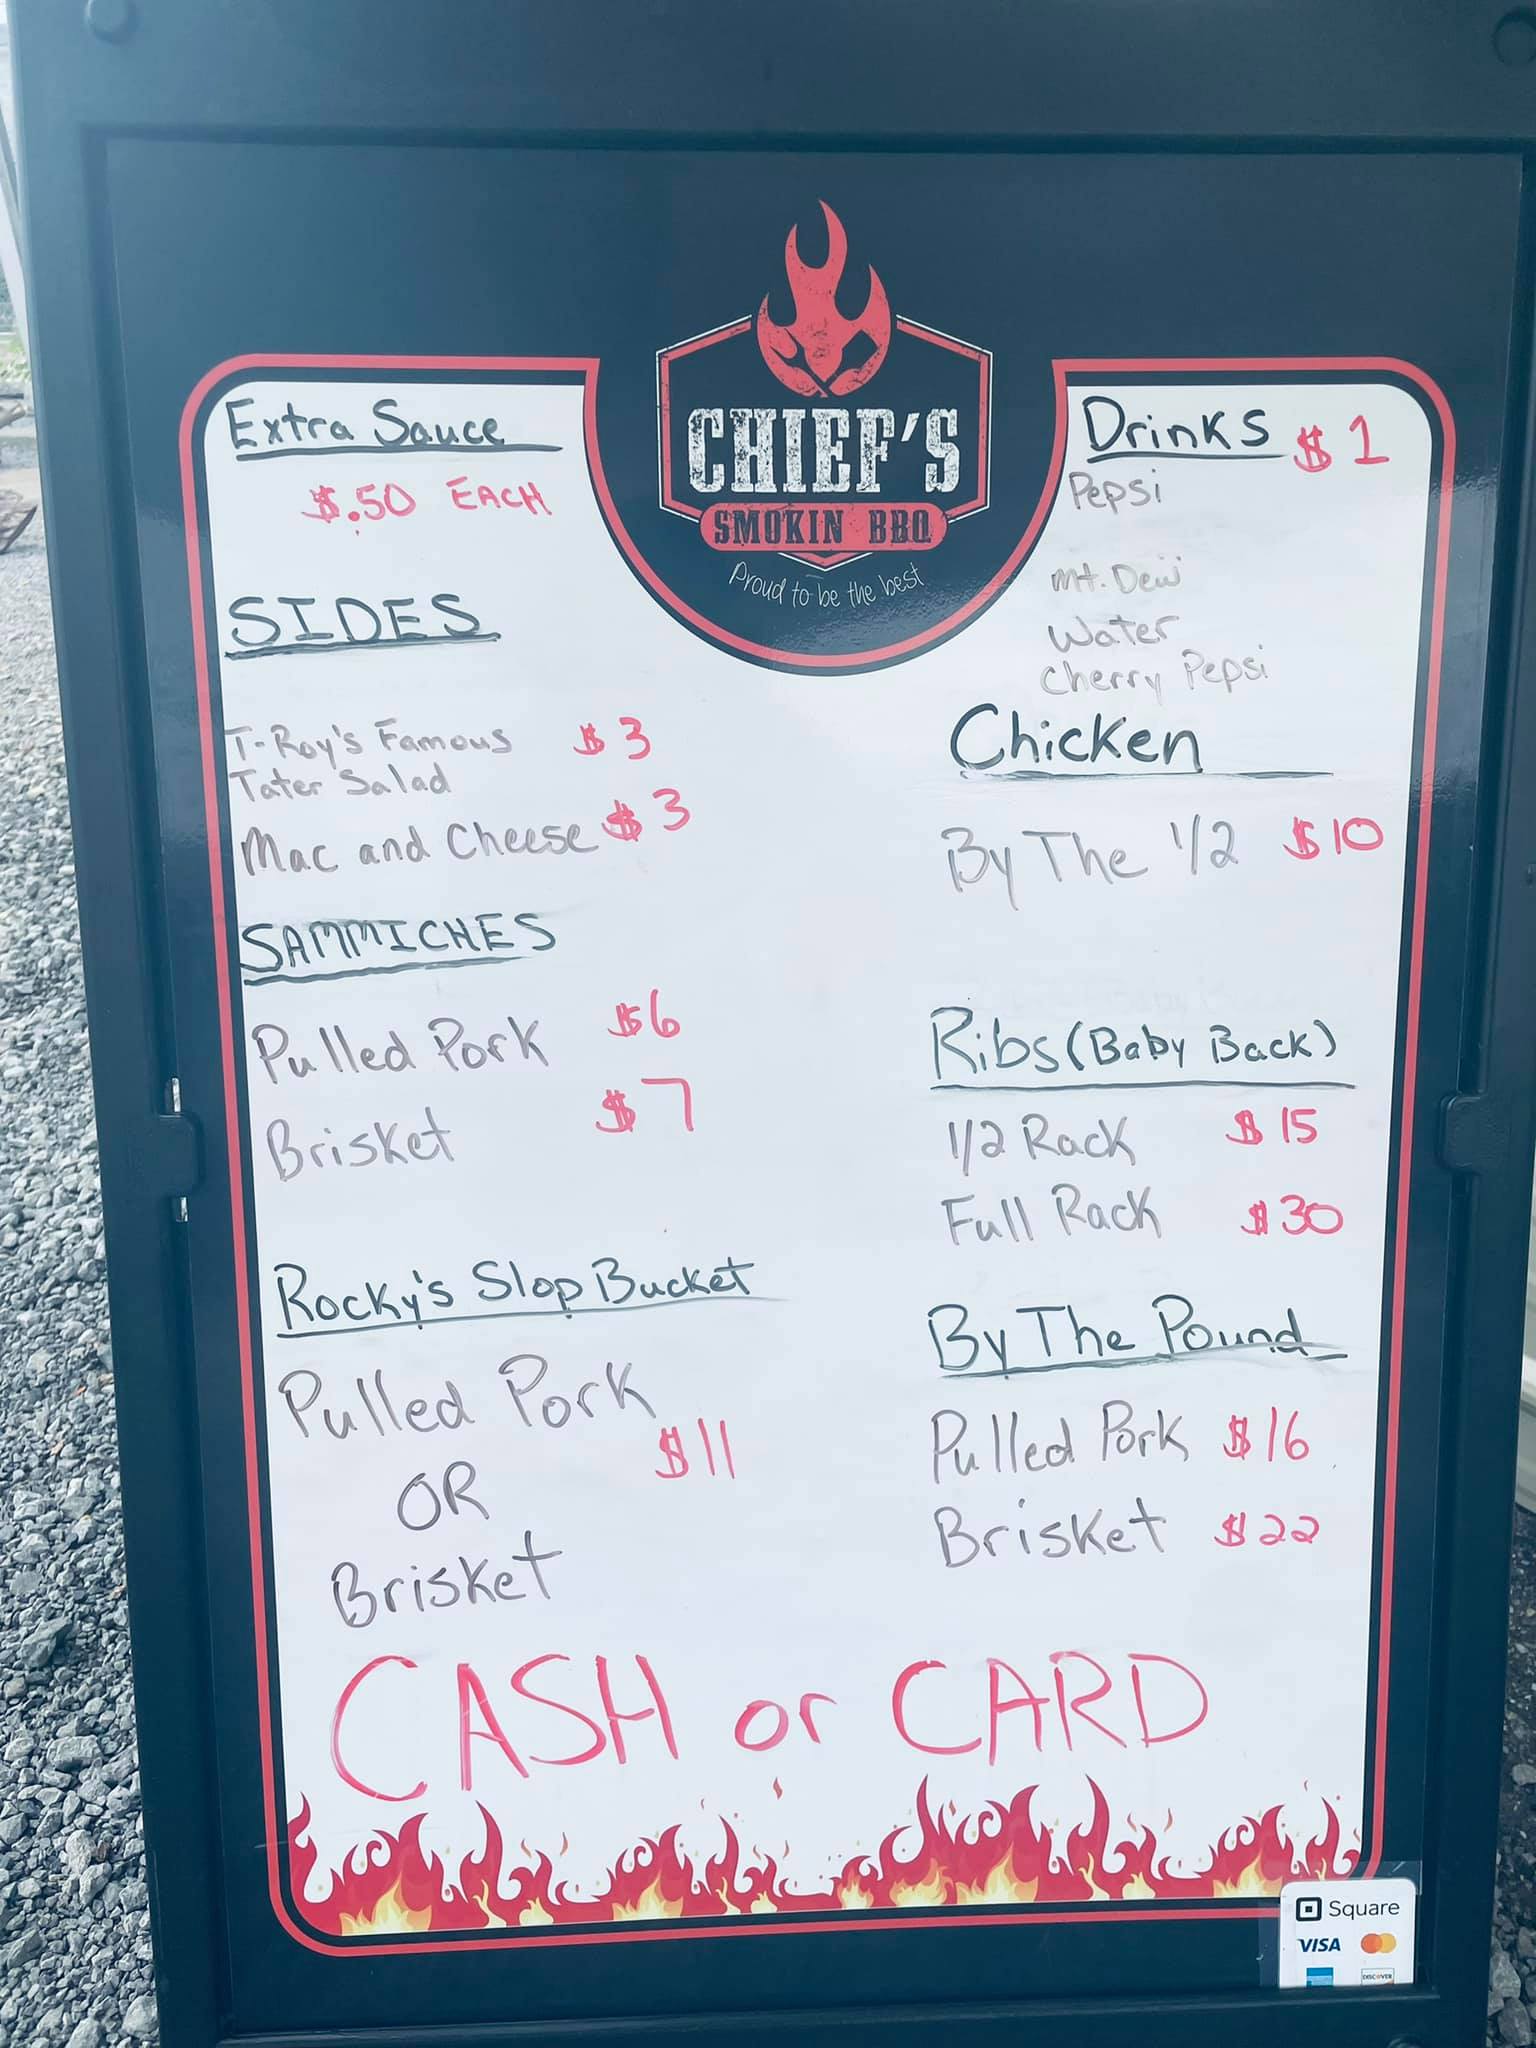 CHIEF'S
SMOKIN BBQ
Proud to be the best
Extra Sauce
$.50 EACH
SIDES
T-Roy's Famous $3
Tater Salad
Mac and Cheese $3
SAMMICHES
Pulled Pork $6
Brisket $7
Rocky's Slop Bucket
Pulled Pork
$11
OR
Brisket
Drinks $1
Pepsi
Mt. Dew
Water
Cherry Pepsi
Chicken
By The 1/2 $10
Ribs (Baby Back)
1/2 Rack $15
Full Rack $30
By The Pound
Pulled Pork $16
Brisket $22
CASH or CARD
Square
VISA
DISCOVER